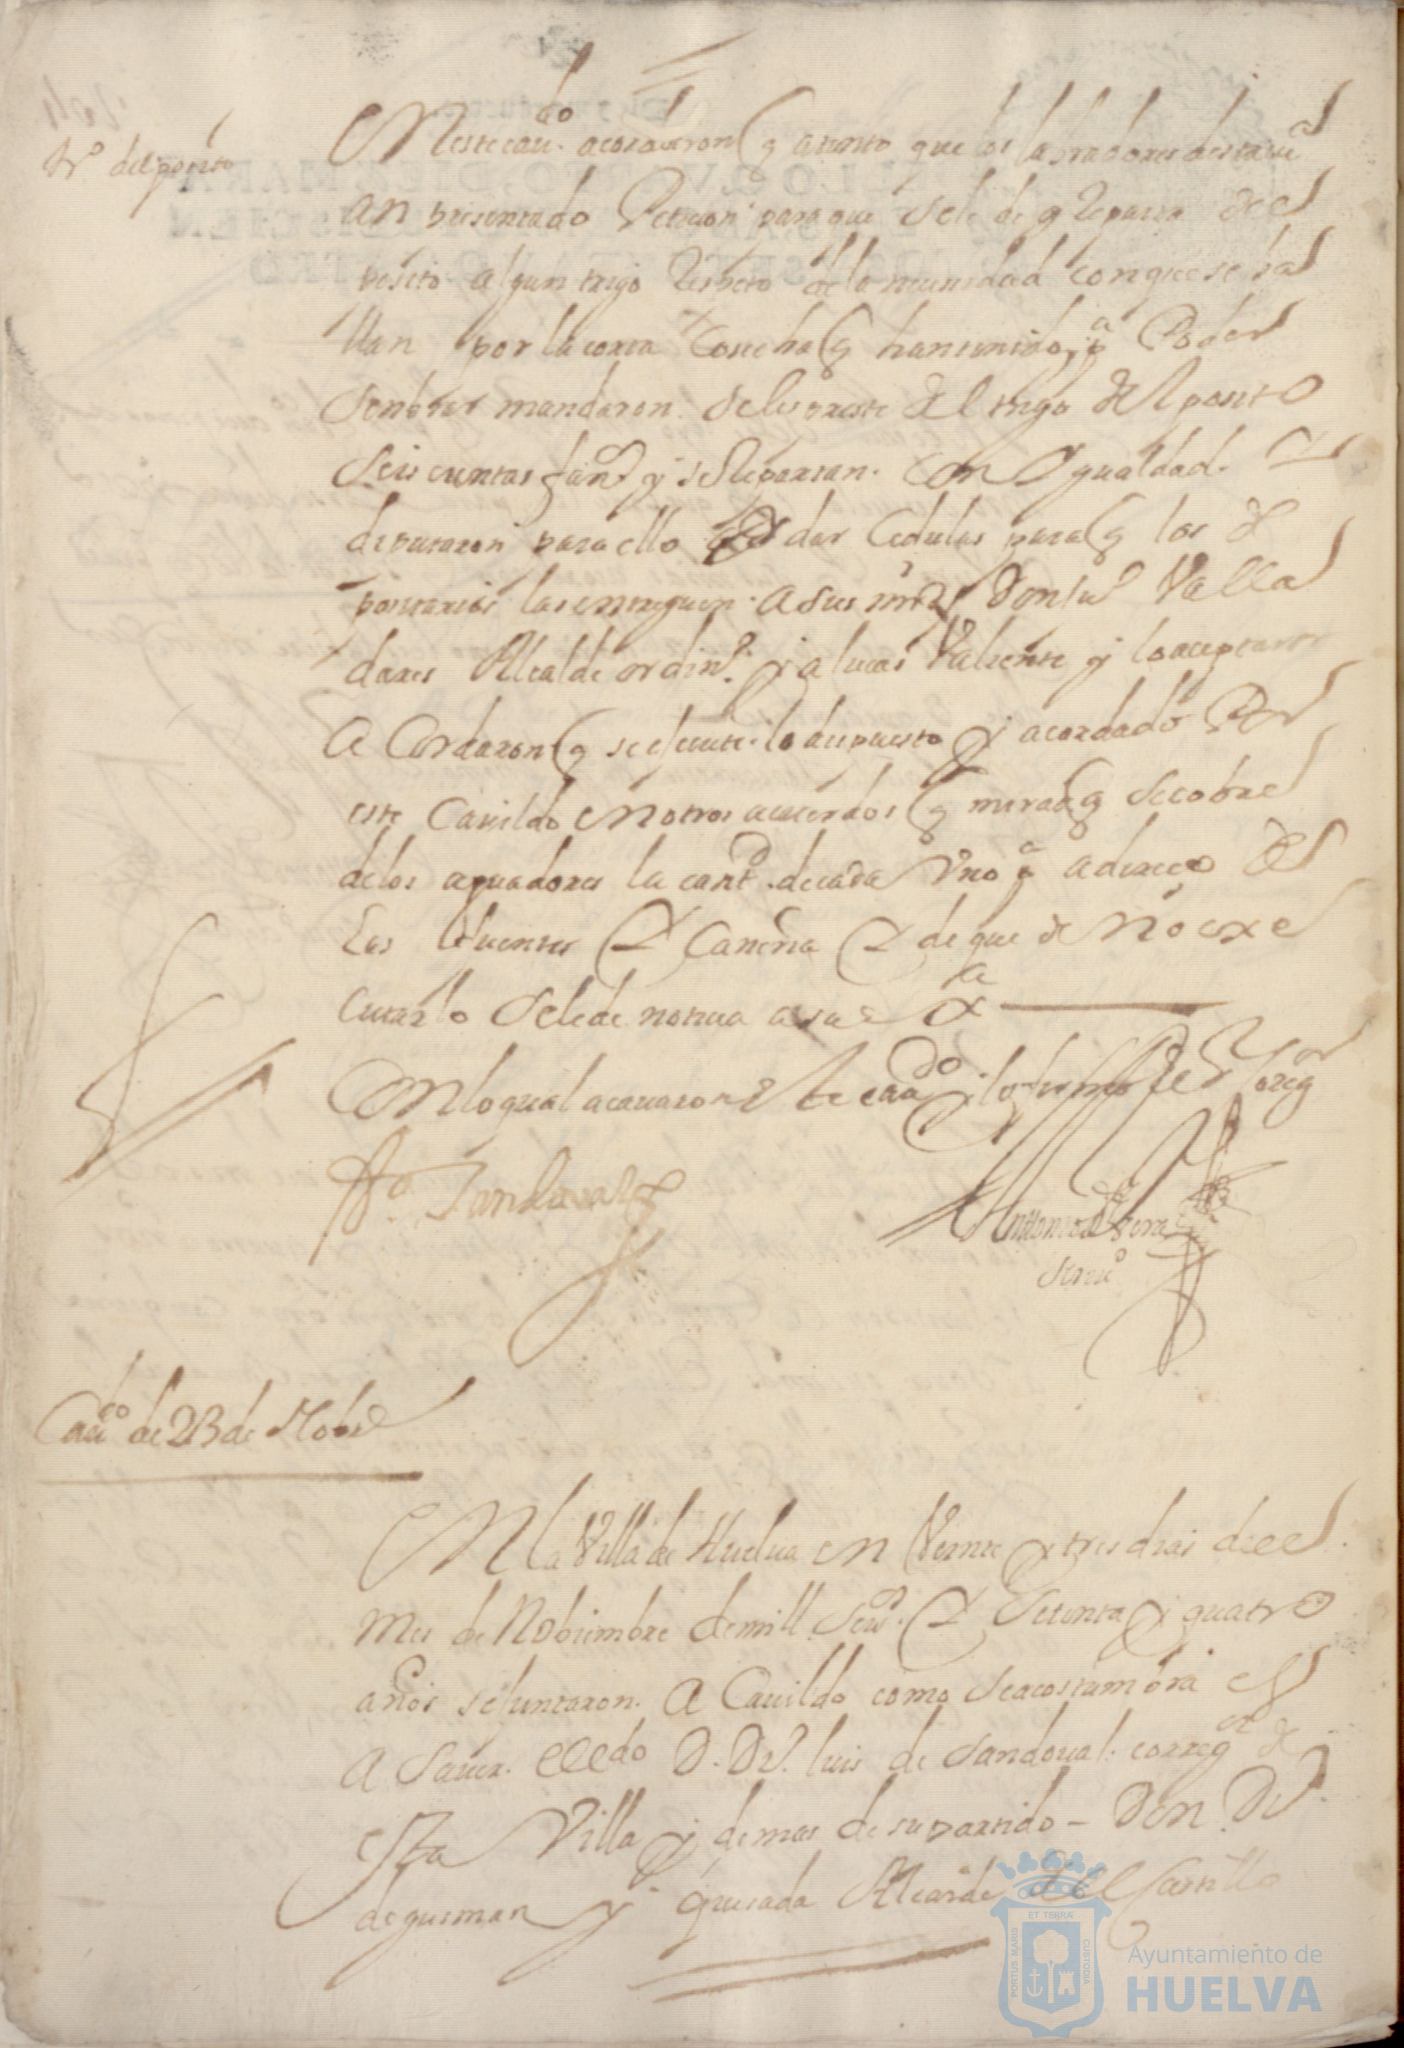 tº del posito
En este cavdo. acordaron q atento que los labradores desta vª
an presentado Peticion para que se le de y Reparta del
posito algun trigo Respeto de la necesidad con que se ha
llan por la corta Cosecha q han tenido pª Poder
senbrar mandaron se les preste del trigo del posito
Seiscientas fans y se Repartan con Ygualdad. Y
deputaron para ello dar Cedulas para q los de
positarios las entreguen a sus mrds Don Juº Valla
dares Alcalde ordinº y a lucas Valiente y lo aceptaron
A Cordaron q se ejecute lo dispuesto y acordado Por
este Cavildo en otros acuerdos q mirad q se cobre
de los aguadores la cantd de cada Uno pª adereço de
las fuentes Y Cañeria Y de que de no exe
cutarlo se le de noticia a su exª
En lo qual acavaron este cavdo y lo firmo el Sr Correg
Dº. Sandoval
Antonio de
Scrivº
Cavdo de 23 de Nobre
En la Villa de Huelva en Veinte y tres dias deel
mes de Nobiembre de mill Seisº. Y Setenta y quatro
años se Juntaron. A Cavildo como se acostumbra es
A Saver. el lldo D. Dº. luis de Sandoval. corregor de
sta Villa y demas de su partido – Don Dº
de gusman y quesada Alcaide del Castillo
PORTUS MARIS
ET TERRÆ
CUSTODIA
Ayuntamiento de
HUELVA